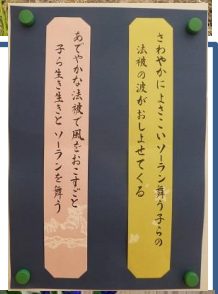 さわやかによさこいソーラン舞う子らの
法被の波がおしよせてくる
あでやかな法被で風をおこすごと
子ら生き生きと ソーランを舞う